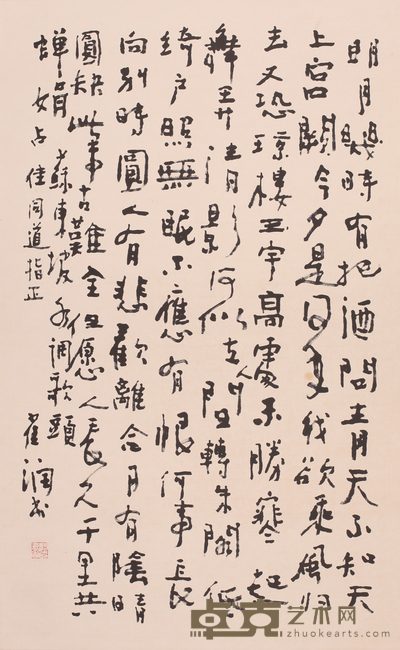 明月幾時有把酒問青天不知天
上宮闕今夕是何年我欲乘風归
去又恐琼樓玉宇高處不勝寒起
舞弄清影何似在人间轉朱阁低
綺户照無眠不應有恨何事長
向别時圓人有悲歡離合月有陰晴
圓缺此事古難全但愿人長久千里共
蟬娟 蘇東坡水調歌頭 潤书
佳同道指正
卓克艺术网
zhuokearts.com